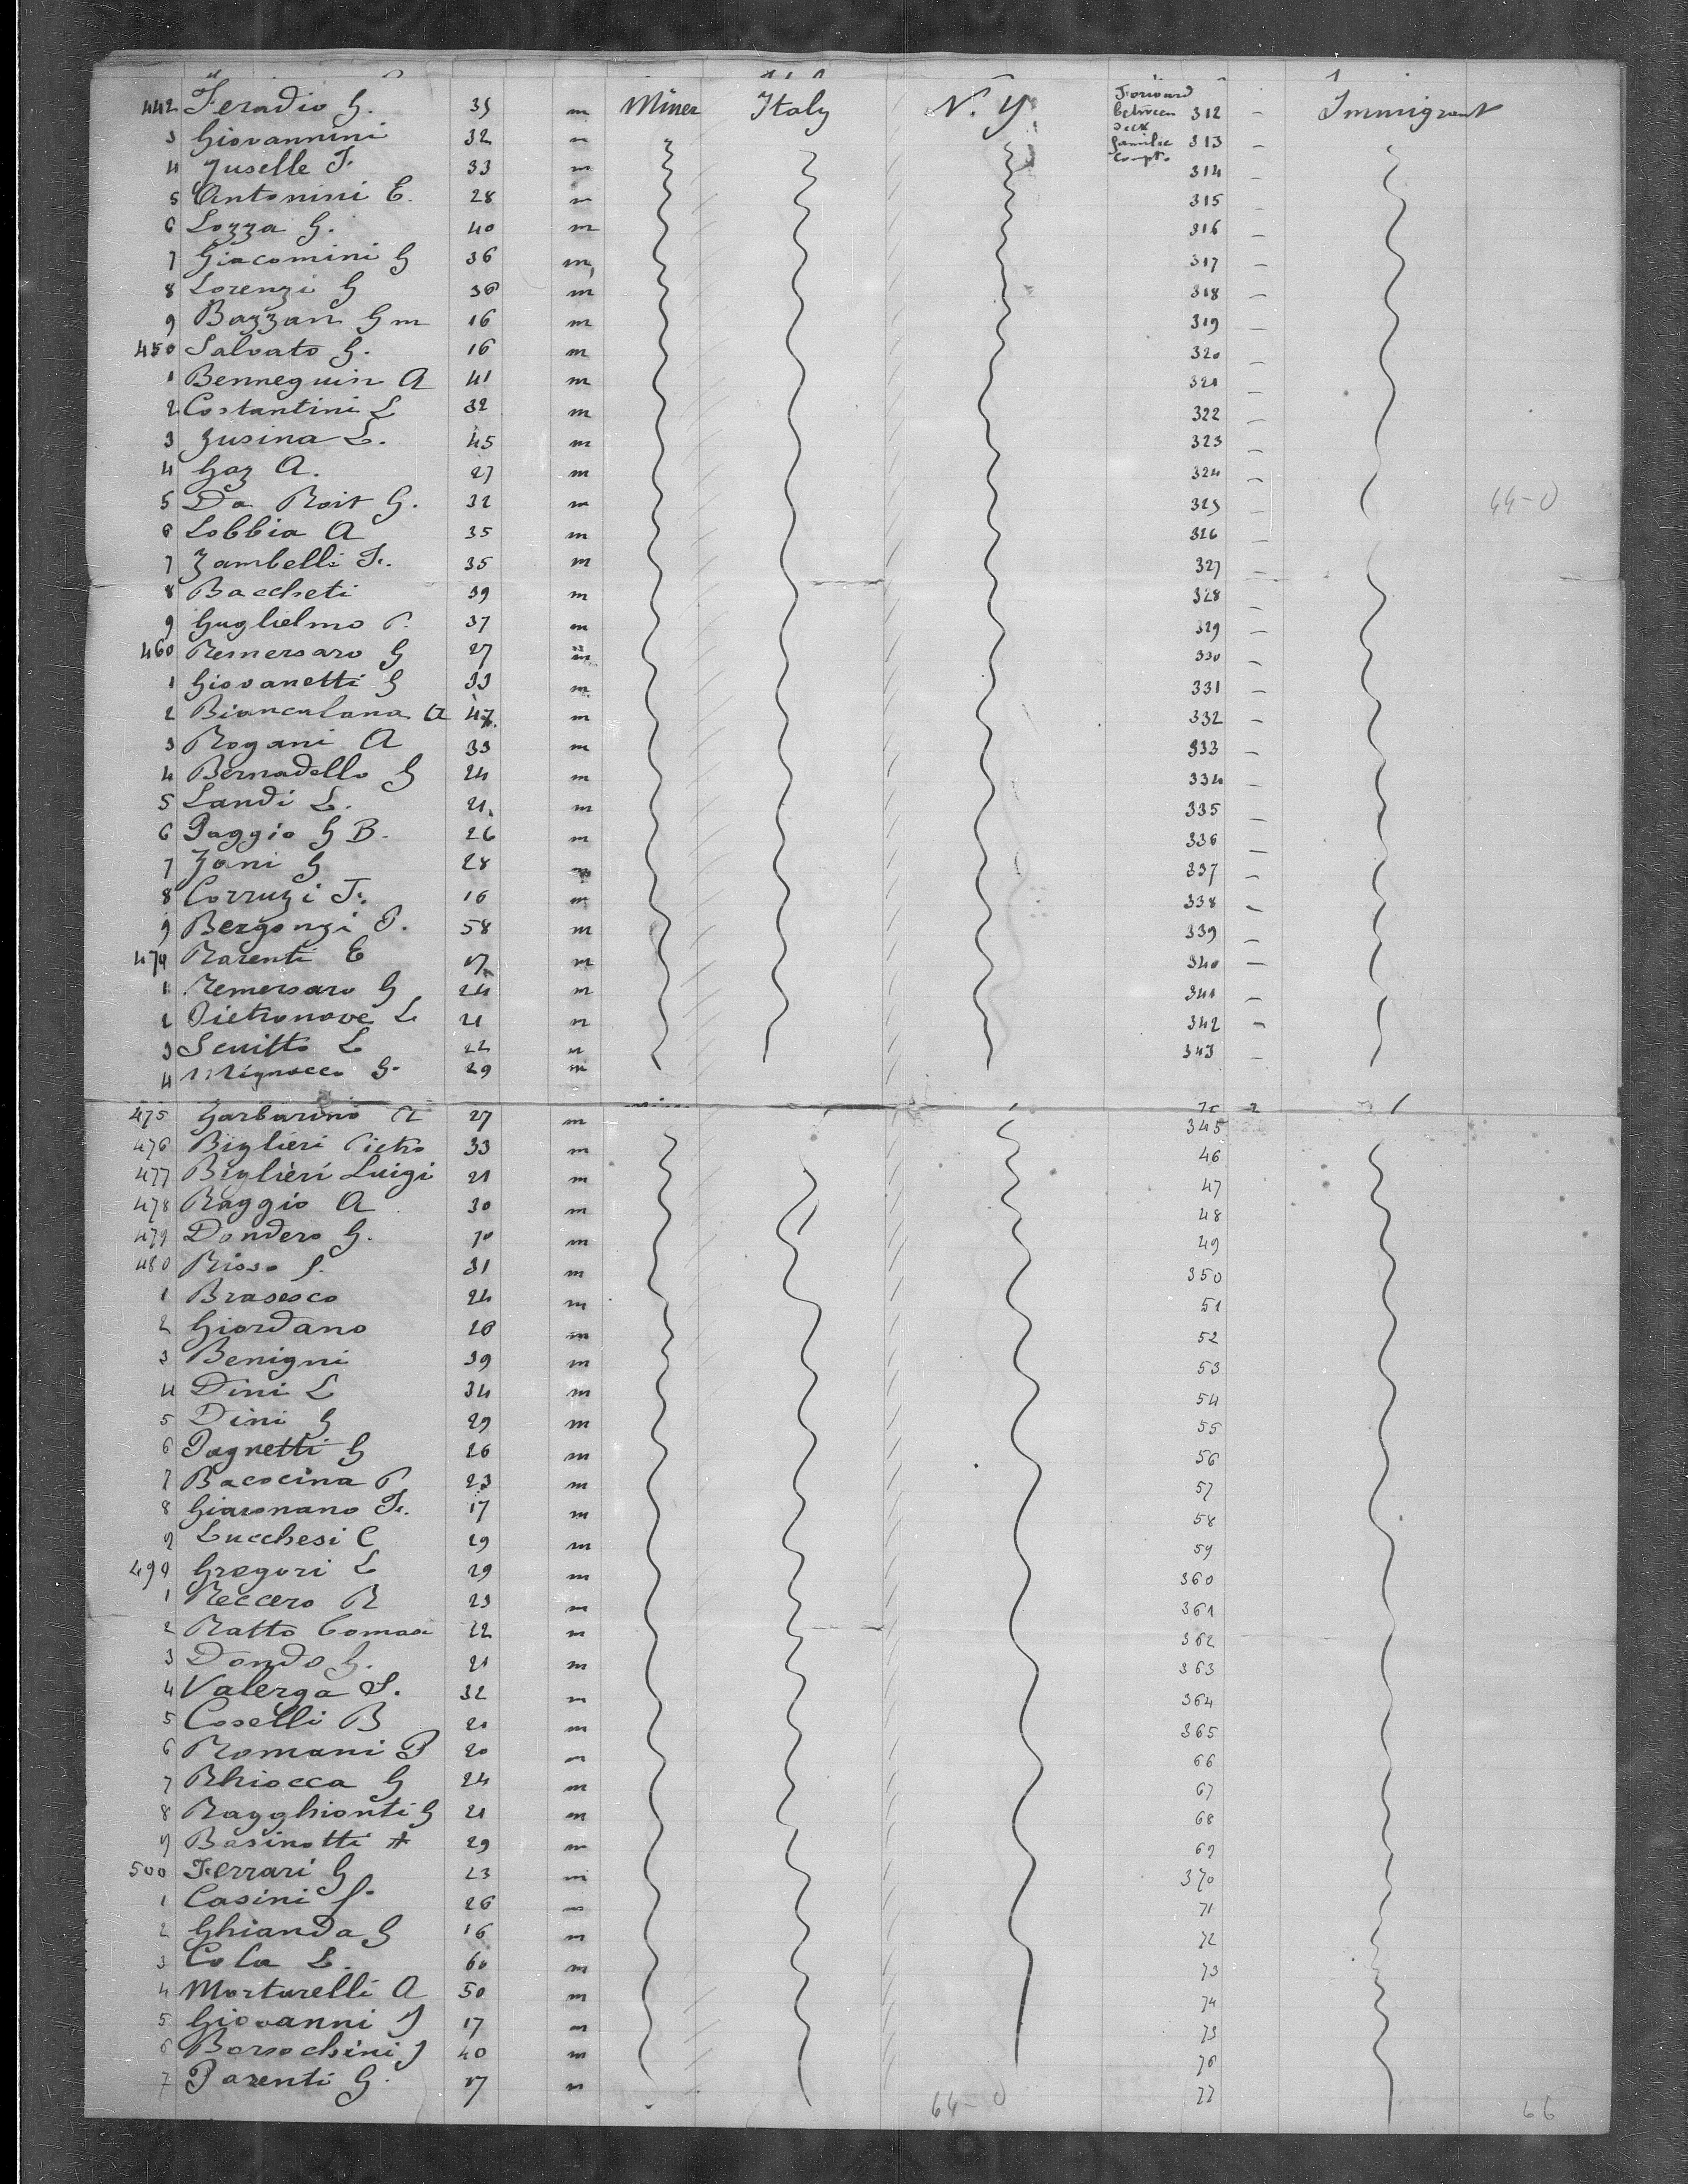 442 Feradio G. 35 m Miner Italy N. Y. Forward between deck familie compts 312 — Immigrant
3 Giovannini 32 m 313 —
4 Juselle F. 33 m 314 —
5 Antonini E. 28 m 315 —
6 Lozza G. 40 m 316 —
7 Giacomini G 36 m 317 —
8 Lorenzi G 36 m 318 —
9 Bazzan G m 16 m 319 —
450 Salvato G. 16 m 320 —
1 Benneguin A 41 m 321 —
2 Costantini L 32 m 322 —
3 Zusina L. 45 m 323 —
4 Gaz A. 27 m 324 —
5 Da Roit G. 32 m 325 — 64-0
6 Lobbia A 35 m 326 —
7 Zambelli F. 35 m 327 —
8 Baccheti 39 m 328 —
9 Guglielmo P. 37 m 329 —
460 Remersaro G 27 m 330 —
1 Giovanetti G 33 m 331 —
2 Biancalana A 47 m 332 —
3 Rogani A 33 m 333 —
4 Bernadello G 24 m 334 —
5 Landi L. 21 m 335 —
6 Paggio G B. 26 m 336 —
7 Zani G 28 m 337 —
8 Corruzi F. 16 m 338 —
9 Bergonzi P. 58 m 339 —
470 Parenti E 17 m 340 —
1 Remersaro G 24 m 341 —
2 Pietronave L 21 m 342 —
3 Scuitto L 22 m 343 —
4 Mignacco G. 29 m
475 Garbarino A 27 m 345
476 Biglieri Pietro 33 m 46
477 Biglieri Luigi 21 m 47
478 Raggio A 30 m 48
479 Dondero G. 70 m 49
480 Risso S. 31 m 350
1 Brasesco 24 m 51
2 Giordano 26 m 52
3 Benigni 39 m 53
4 Dini L 34 m 54
5 Dini G 29 m 55
6 Pagnetti G 26 m 56
7 Bacocina P 23 m 57
8 Giaronano F. 17 m 58
9 Lucchesi C 29 m 59
490 Gregori L 29 m 360
1 Reccero R 23 m 361
2 Ratto Tomaso 22 m 362
3 Dondo G. 21 m 363
4 Valerga S. 32 m 364
5 Coselli B 21 m 365
6 Romani P 20 m 66
7 Rhiocca G 24 m 67
8 Ragghionti G 21 m 68
9 Basinotti A 29 m 69
500 Ferrari G 23 m 370
1 Casini S. 26 m 71
2 Ghianda G 16 m 72
3 Cola L. 60 m 73
4 Morturelli A 50 m 74
5 Giovanni J 17 m 75
6 Borsochini J 40 m 76
7 Parenti G. 17 m 77
64-0 66